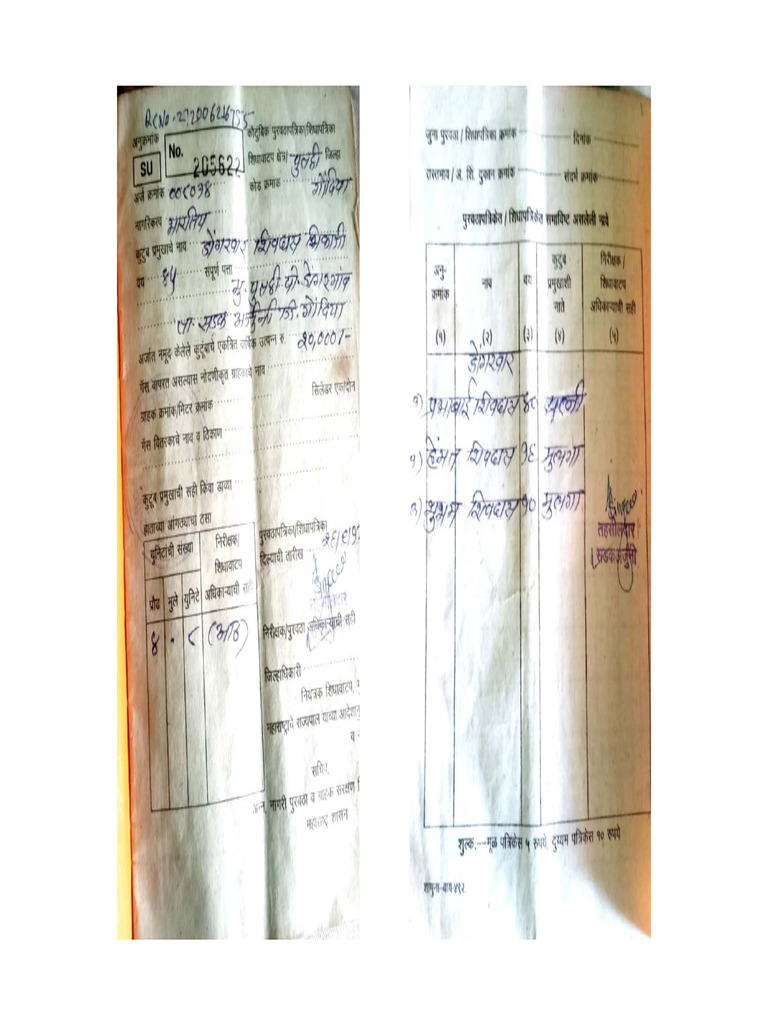 RC No. 272006246755
अनुक्रमांक
कौटुंबिक पुरवठापत्रिका/शिधापत्रिका
SU
No. 205622
शिधावाटप क्षेत्र/ पुतळी जिल्हा
अर्ज क्रमांक
कोड क्रमांक गोंदिया
नागरिकत्व भारतिय
कुटुंब प्रमुखाचे नाव डोंगरवार शिवदास भिकाजी
वय ४५ संपूर्ण पत्ता मु. पुतळी पो. डोंगरगाव
ता. सडक अर्जुनी जि. गोंदिया
अर्जात नमूद केलेले कुटुंबाचे एकत्रित वार्षिक उत्पन्न रु. २०,०००/-
गॅस वापरत असल्यास नोंदणीकृत ग्राहकाचे नाव
ग्राहक क्रमांक/मिटर क्रमांक सिलेंडर एक/दोन
गॅस वितरकाचे नाव व ठिकाण
कुटुंब प्रमुखाची सही किंवा डाव्या
हाताच्या आंगठ्याचा ठसा
युनिटांची संख्या
निरीक्षक/
शिधावाटप
अधिकाऱ्याची
प्रौढ मुले युनिटे
४ - ८ (आठ)
पुरवठापत्रिका/शिधापत्रिका
दिल्याची तारीख
निरीक्षक/पुरवठा अधिकाऱ्याची सही
जिल्हाधिकारी
नियंत्रक शिधावाटप,
महाराष्ट्राचे राज्यपाल यांच्या
सचिव,
अन्न, नागरी पुरवठा व ग्राहक संरक्षण
महाराष्ट्र शासन
जुना पुरवठा / शिधापत्रिका क्रमांक दिनांक
रास्तभाव / अ. शि. दुकान क्रमांक संदर्भ क्रमांक
पुरवठापत्रिकेत / शिधापत्रिकेत समाविष्ट असलेली नावे
अनु-
क्रमांक
नाव
वय
कुटुंब
प्रमुखाशी
नाते
निरीक्षक /
शिधावाटप
अधिकाऱ्याची सही
(१) (२) (३) (४) (५)
डोंगरवार
१) प्रभाबाई शिवदास ४० पत्नी
२) हेमंत शिवदास १६ मुलगा
३) शुभम शिवदास १० मुलगा
तहसीलदार
सडक अर्जुनी
शुल्क.---मूळ पत्रिकेस ५ रुपये, दुय्यम पत्रिकेस १० रुपये